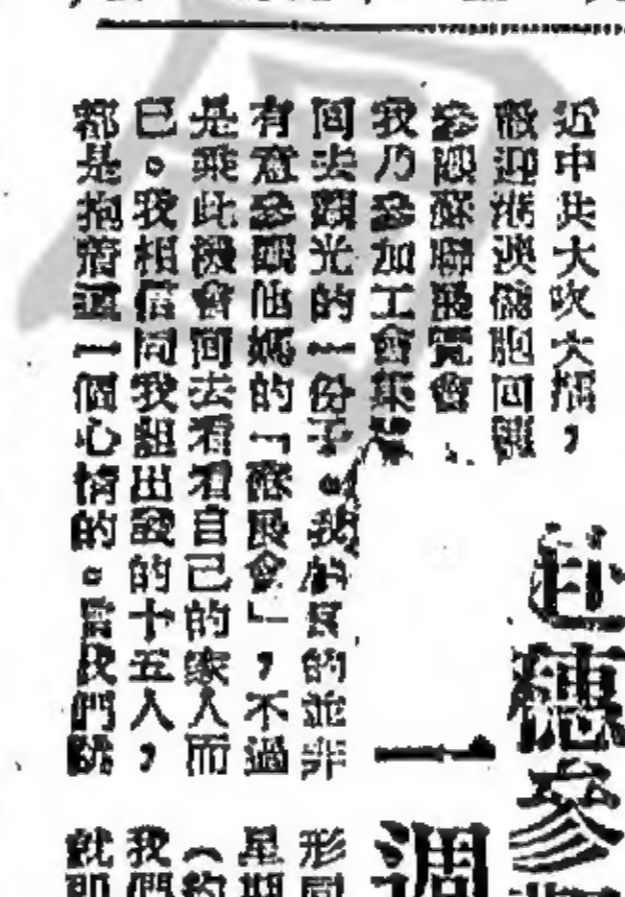 近中共大吹大擂,
歡迎港澳僑胞回穗
參觀蘇聯展覽會,
我乃參加工會集
回去觀光的一份子。我
的並非
有意參觀他媽的「蘇展會」,不過
是乘此機會回去看看自己的家人而
已。我相信同我組出發的十五人,
都是抱著這一個心情的。當我們
穗參
一週
形同
星期
(約
我們
就即